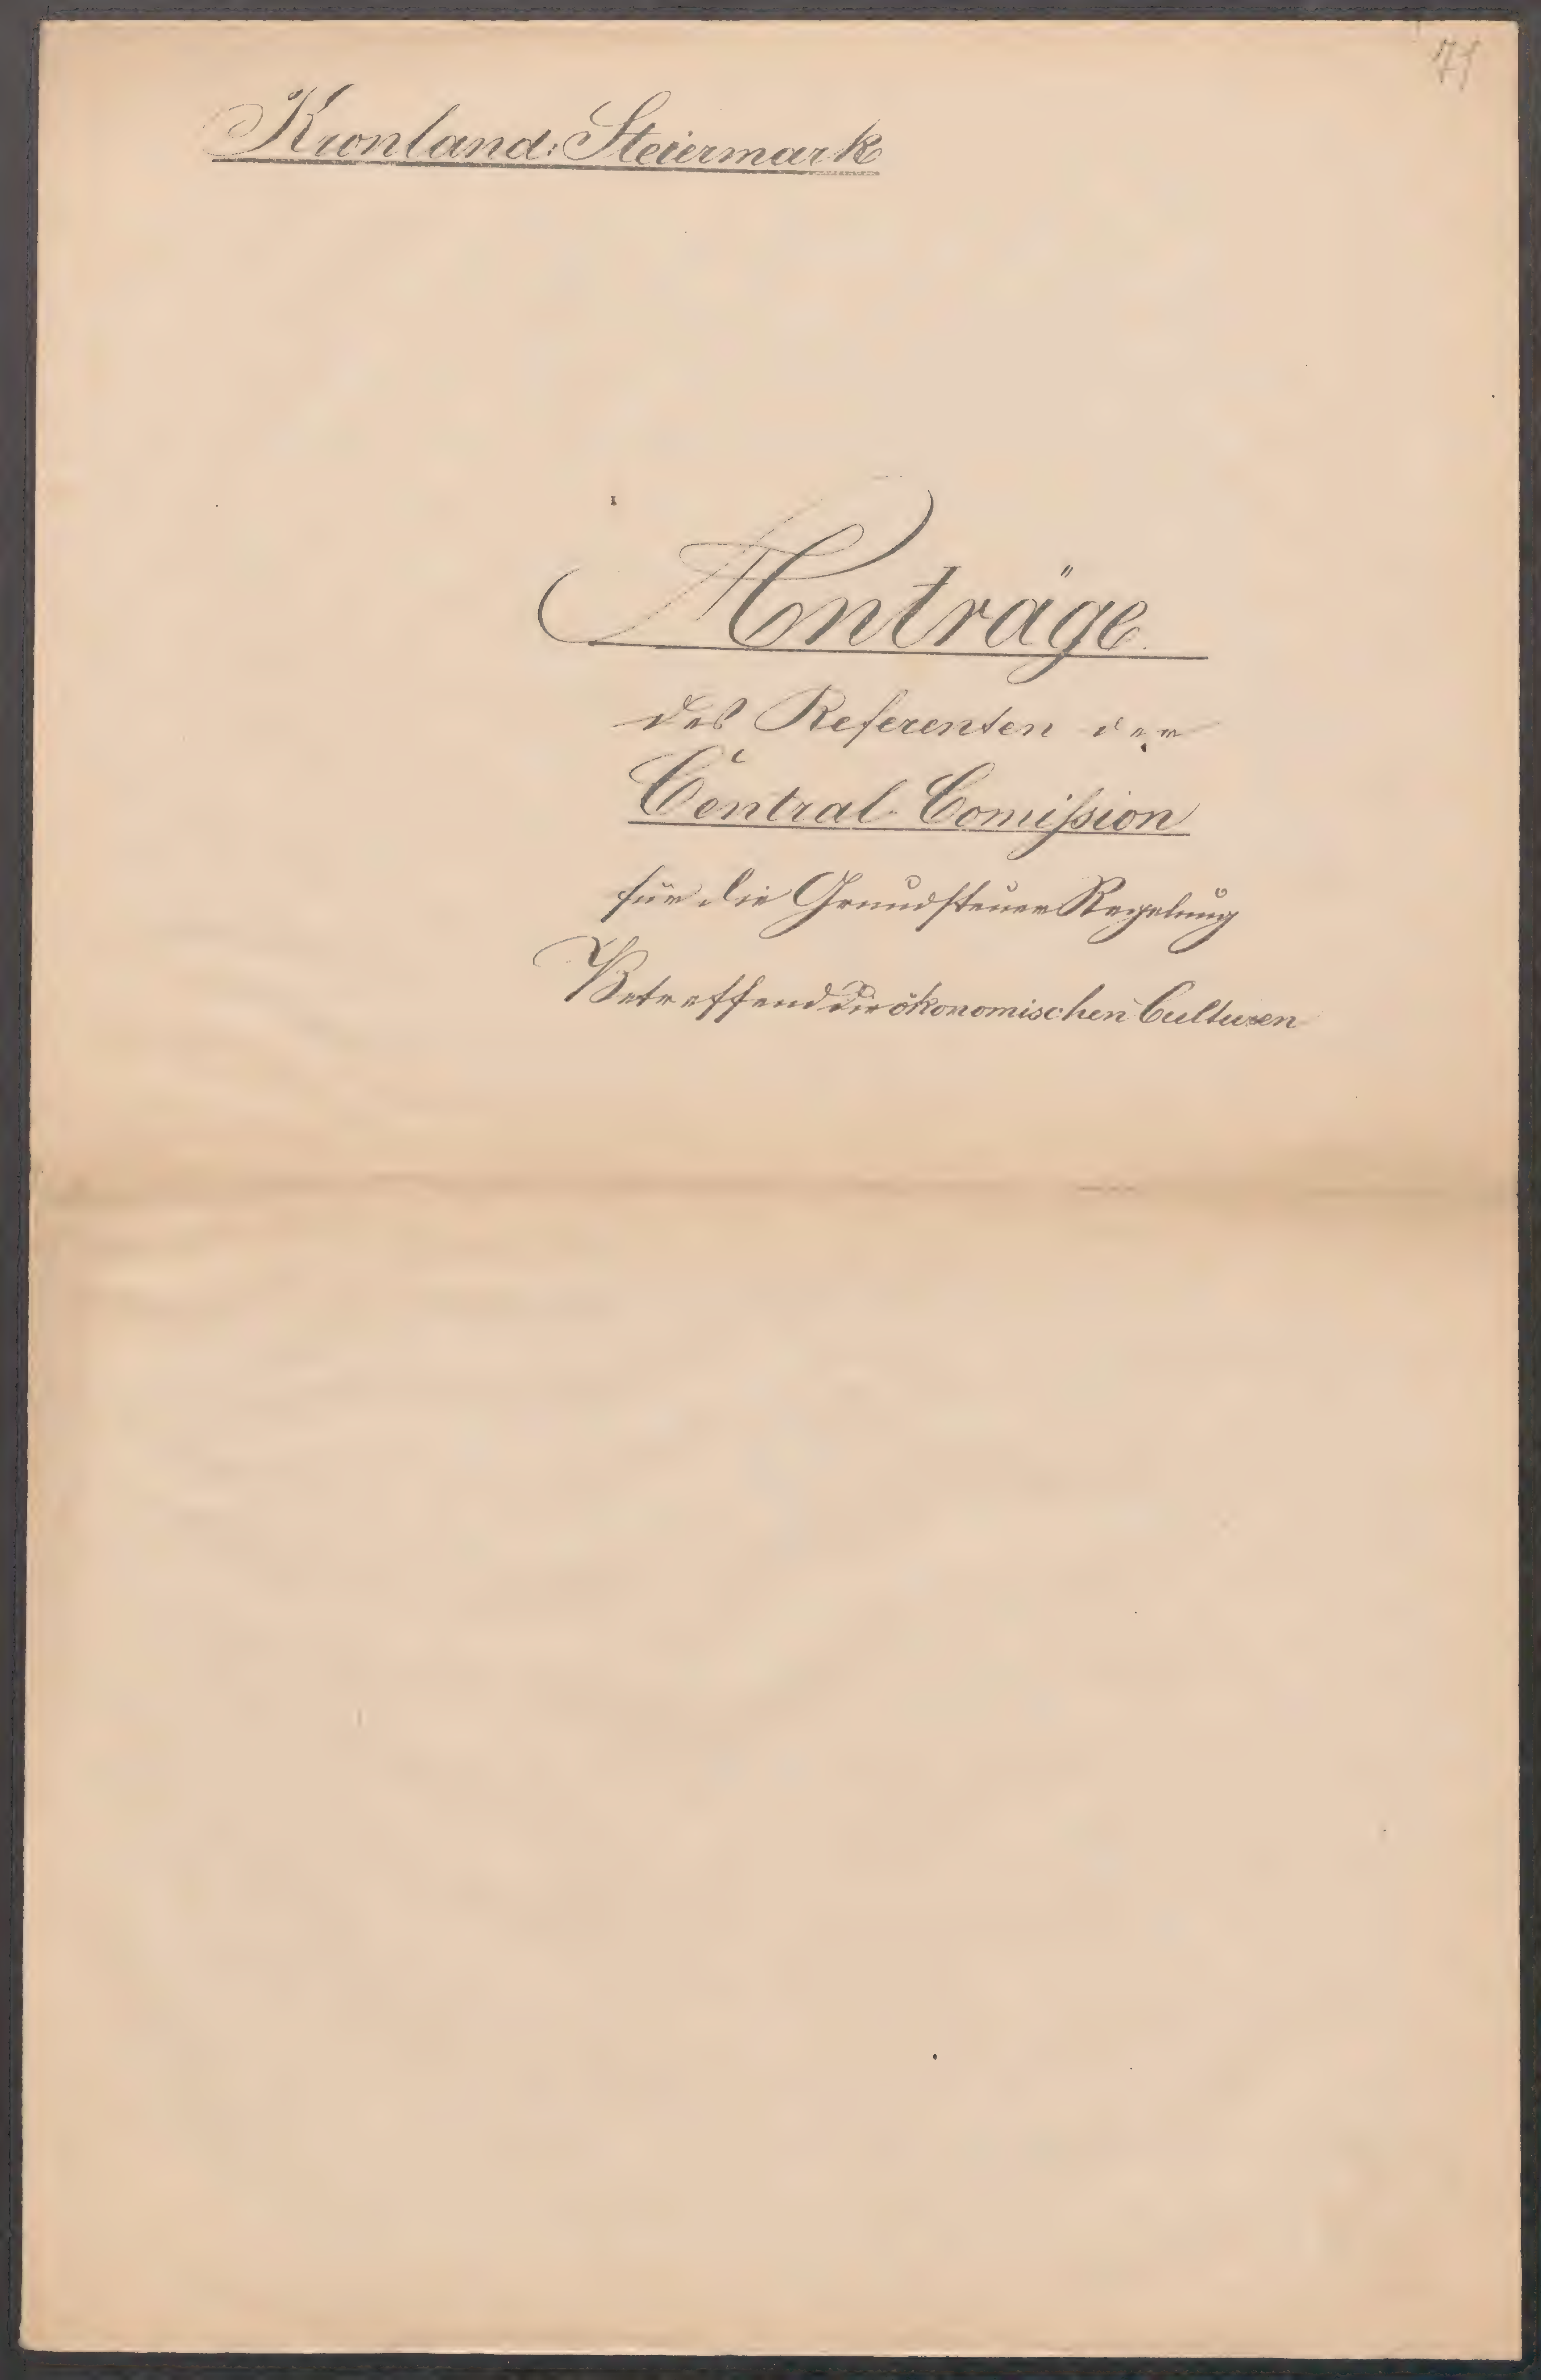 Kronland: Steiermark
Anträge
des Referenten der
Central-Comißion
für die Grundsteuer Regelung
Betreffend die ökonomischen Culturen